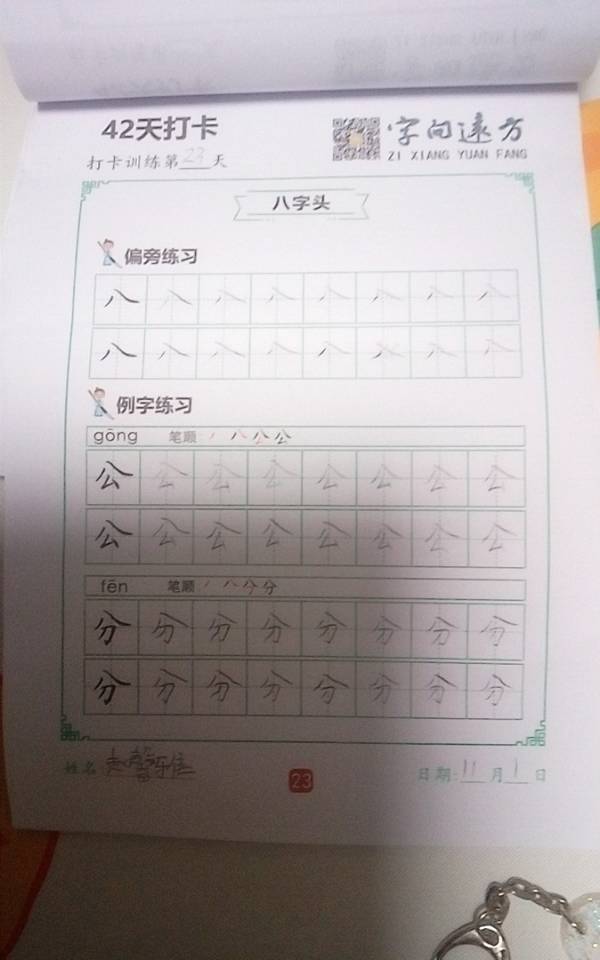 42天打卡
字向遠方
打卡训练第23天
ZI XIANG YUAN FANG
八字头
偏旁练习
八 八 八 八 八 八 八 八
八 八 八 八 八 八 八 八
例字练习
gōng 笔顺: 公
公 公 公 公 公 公 公 公
公 公 公 公 公 公 公 公
fēn 笔顺: 分 分
分 分 分 分 分 分 分 分
分 分 分 分 分 分 分 分
姓名
23
日期:11月1日